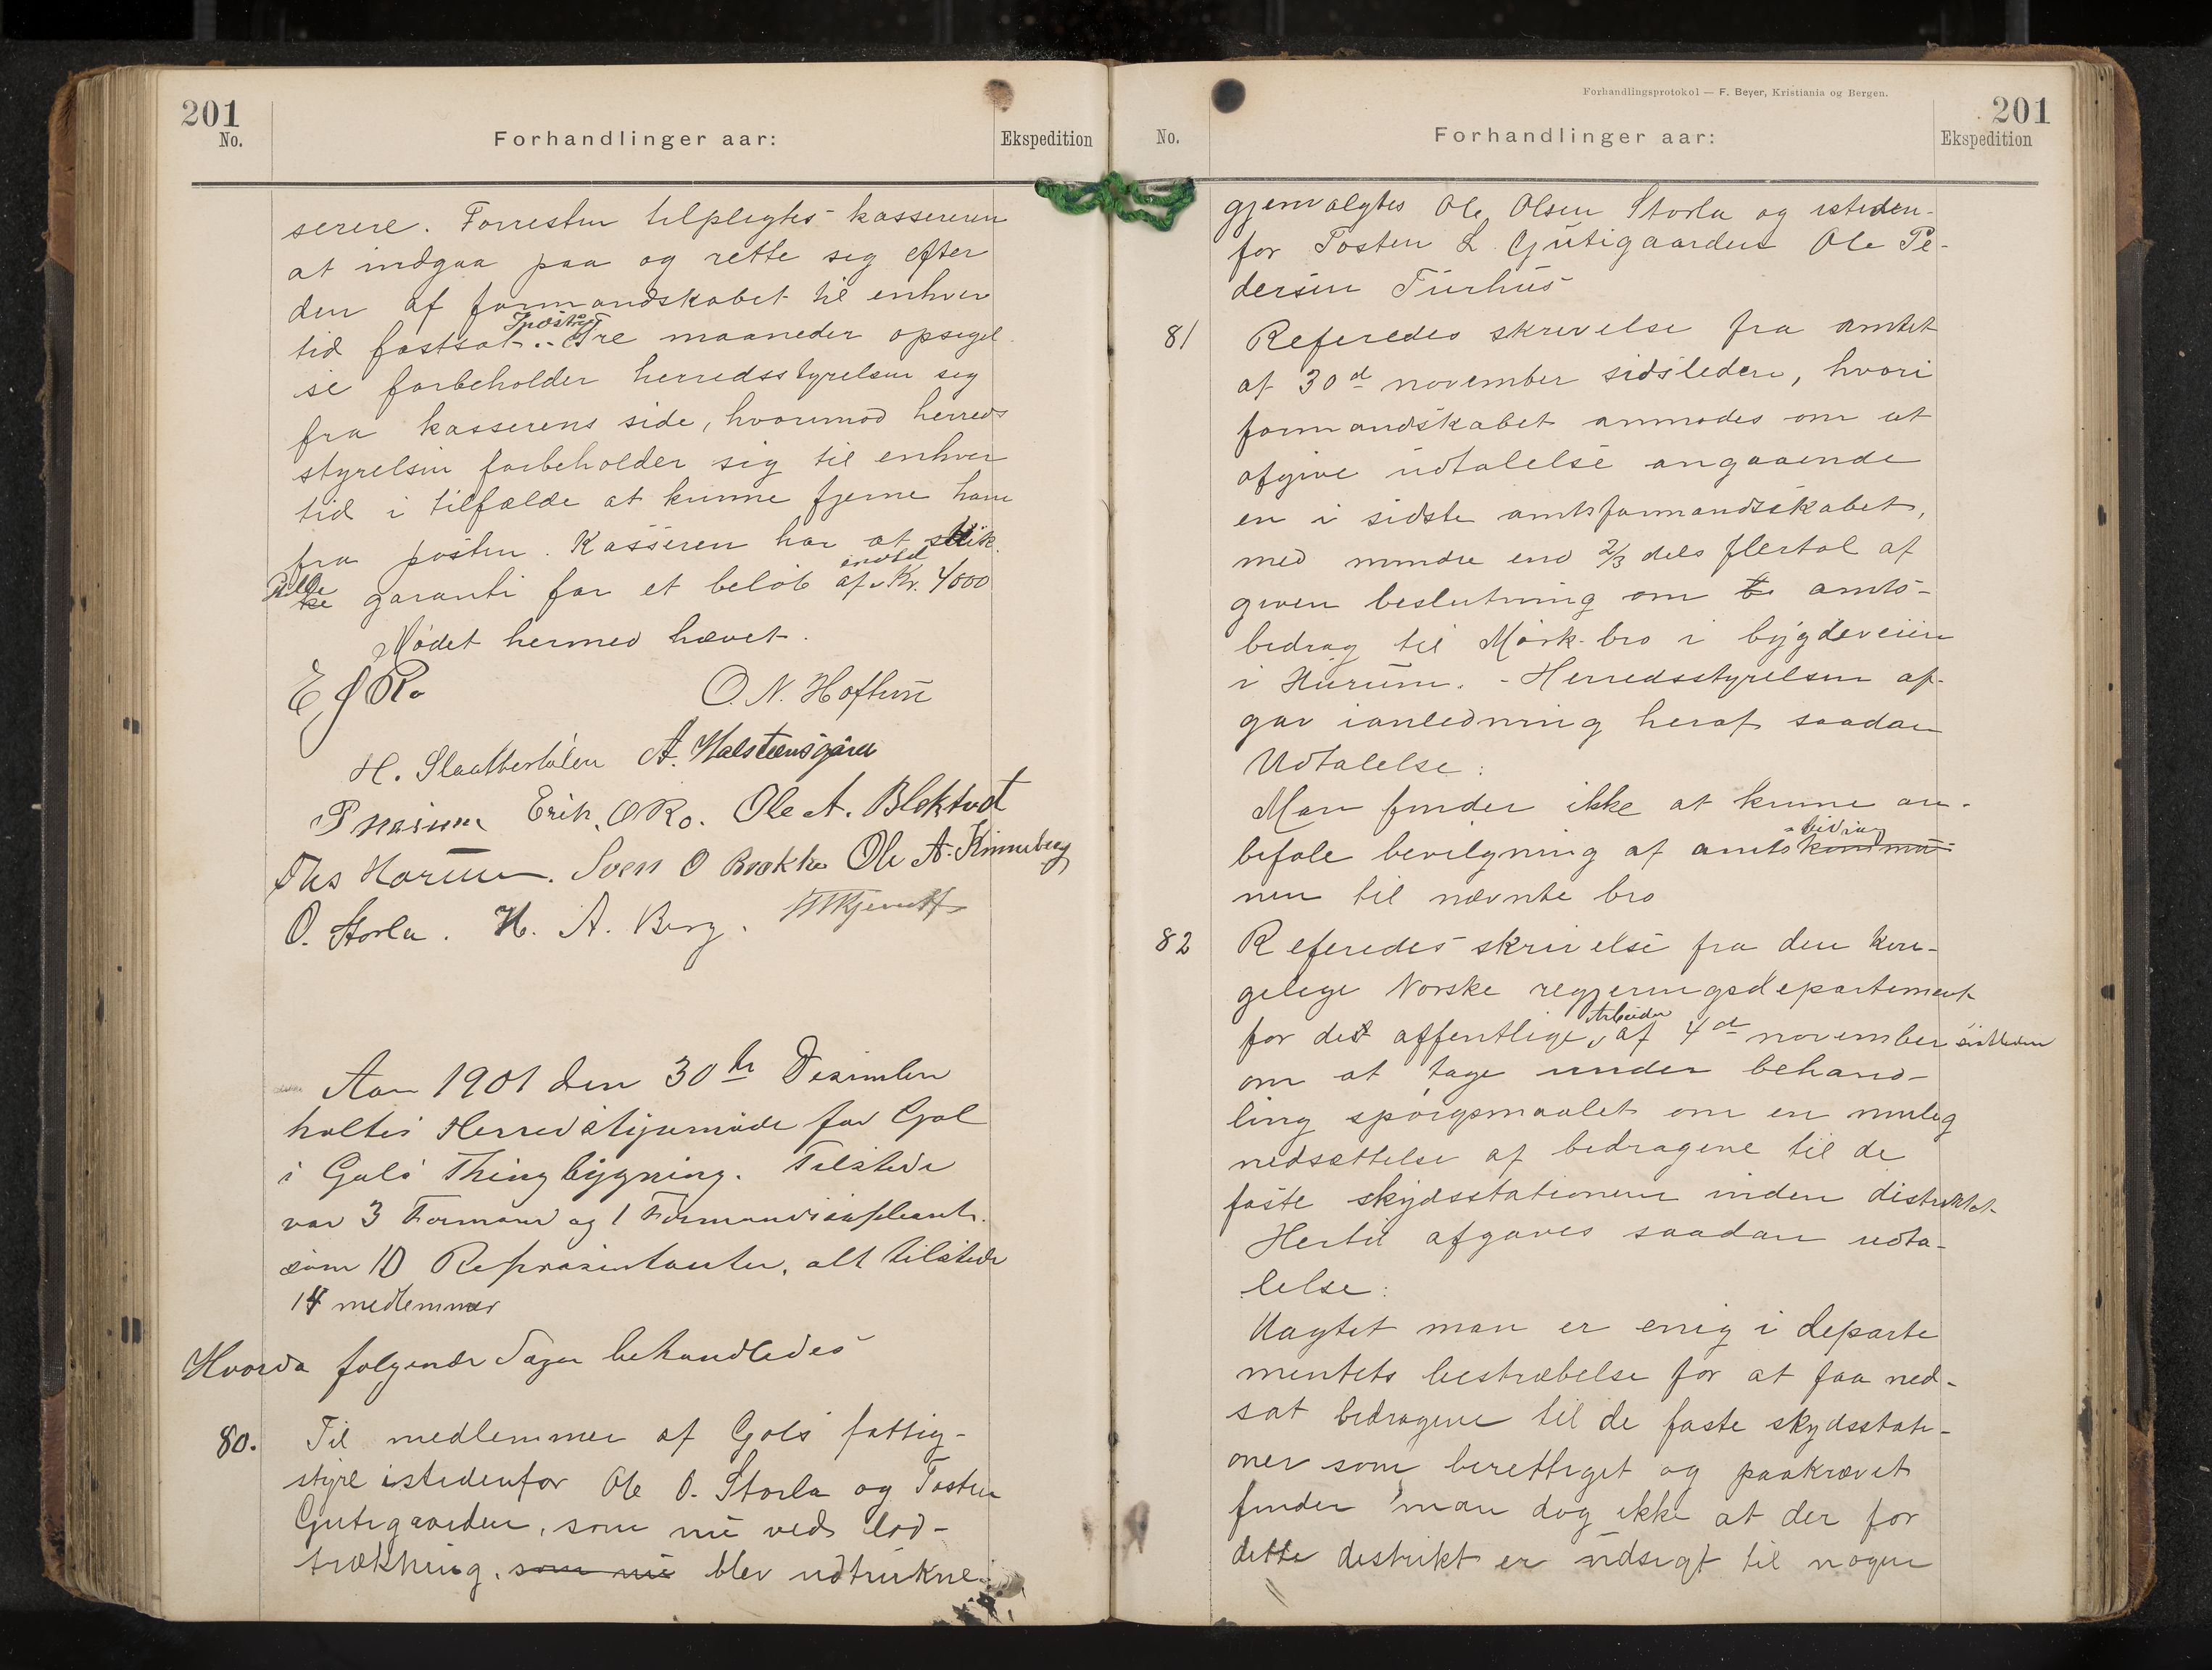 201
No.
Forhandlinger aar:
Ekspedition
serere. Forresten tilpligtes kassereren
at indgaa paa og rette sig efter
den af formandskabet til enhver
tid fastsat Instrux. Tre maaneder opsigel
se forbeholder herredsstyrelsen seg
fra kasserens side, hvorimod herreds
styrelsen forbeholder sig til enhver
tid i tilfælde at kunne fjerne ham
fra posten. Kasseren har at stille
garanti for et beløb af indtil Kr. 4000
Mødet hermed hævet.
E J Ro
O. N. Hoftun
H. Slaattertølen A. Halstensgård
Erik. O Ro. Ole A. Blektvedt
Ths Horum. Sven O Brække Ole A. Kinneberg
O. Storla. H. A. Berg.
Aar 1901 den 30te Desember
holtes Herredstyremøde for Gol
i Gols Thingbygning. Tilstede
var 3 Formænd og 1 Formandssupleant.
som 10 Repræsentanter, alt tilstede
14 medlemmer
Hvorda følgende Sager behandledes
80. Til medlemmer af Gols fattig-
styre istedenfor Ole O. Storla og Tosten
Gutigaarden, som nu ved lod-
trækning, som nu blev udtrukne.
Forhandlingsprotokol — F. Beyer, Kristiania og Bergen.
201
No.
Forhandlinger aar:
Ekspedition
gjenvalgtes Ole Olsen Storla og isteden-
for Tosten L. Gutigaarden Ole Pe-
dersen Turhus
81 Referedes skrivelse fra amtet
af 30d november sidstleden, hvori
formandskabet anmodes om at
afgive udtalelse angaaende
en i sidste amtsformandsskabet,
med mindre end 2/3 dels flertal af
given beslutning om amts-
bedrag til Mørk bro i bygdeveien
i Hurum. - Herredsstyrelsen af-
gav ianledning heraf saadan
Udtalelse:
Man finder ikke at kunne an-
befale bevilgning af amtsbidrag kommu-
nen til nævnte bro
82 Referedes skrivelse fra den kon-
gelige Norske regjeringsdepartement
for det offentlige Arbeider af 4de november sistleden
om at tage under behand-
ling spørgsmaalet om en mulig
nedsættelse af bedragene til de
faste skydsstationene inden distriktet.
Hertil afgaves saadan udta-
lelse:
Uagtet man er enig i departe
mentets bestræbelse for at faa ned-
sat bedragene til de faste skydsstati-
oner som berettiget og paakrævet
finder man dog ikke at der for
dette destrikt er udsigt til nogen